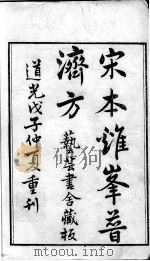 宋本雞峯普
濟方
藝芸書舍藏板
道光戊子仲夏重刊
mtoou.info